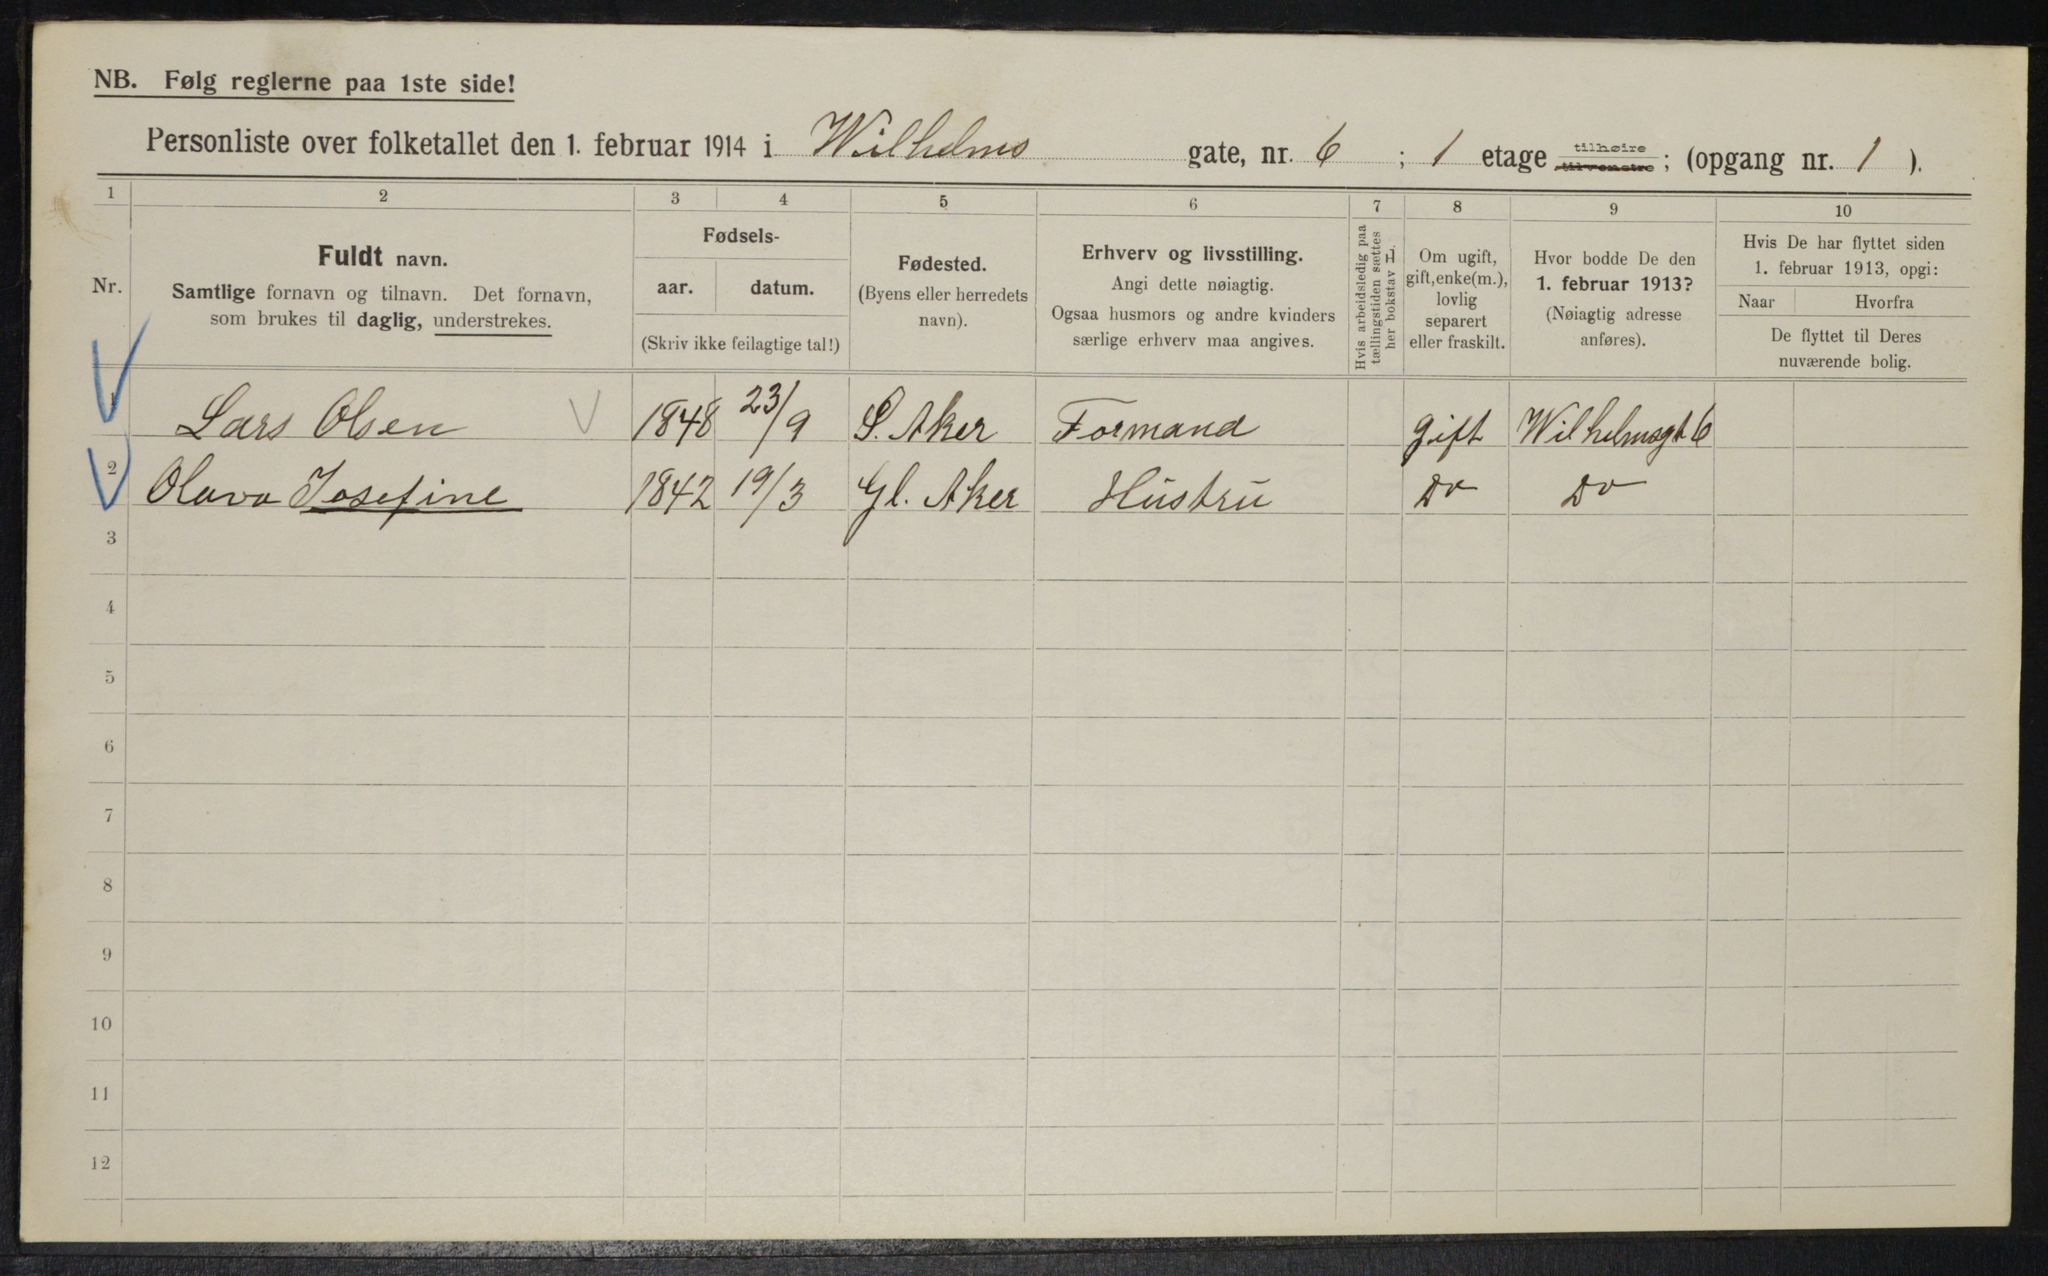 NB. Følg reglerne paa 1ste side!
Personliste over folketallet den 1. februar 1914 i Wilhelms gate, nr. 6 ; 1 etage tilhøire tilvenstre ; (opgang nr. 1 ).
1 2 3 4 5 6 7 8 9 10
Nr.
Fuldt navn.
Samtlige fornavn og tilnavn. Det fornavn,
som brukes til daglig, understrekes.
Fødsels-
aar. datum.
(Skriv ikke feilagtige tal!)
Fødested.
(Byens eller herredets
navn).
Erhverv og livsstilling.
Angi dette nøiagtig.
Ogsaa husmors og andre kvinders
særlige erhverv maa angives.
Hvis arbeidsledig paa
tællingstiden sættes
her bokstav L.
Om ugift,
gift, enke(m.),
lovlig
separert
eller fraskilt.
Hvor bodde De den
1. februar 1913?
(Nøiagtig adresse
anføres).
Hvis De har flyttet siden
1. februar 1913, opgi:
Naar Hvorfra
De flyttet til Deres
nuværende bolig.
1 Lars Olsen 1848 23/9 S. Aker Formand gift Wilhelmsgt 6
2 Olava Josefine 1842 19/3 Gl. Aker Hustru Do Do
3
4
5
6
7
8
9
10
11
12